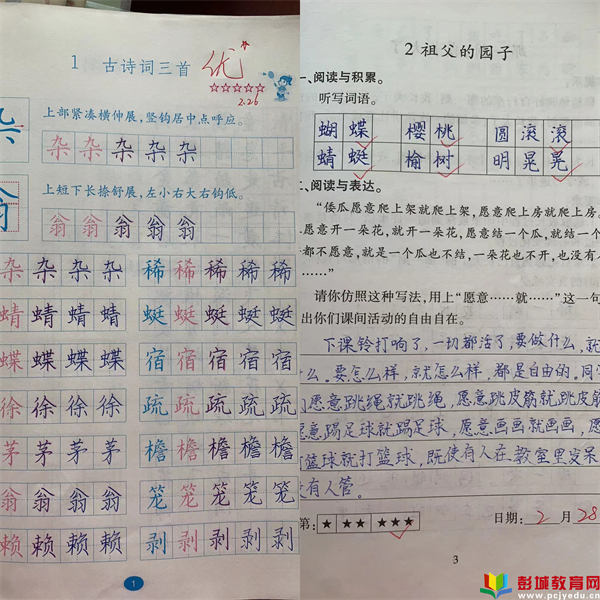 1 古诗词三首
优
2.26
上部紧凑横伸展，竖钩居中点呼应。
杂 杂 杂 杂 杂
上短下长捺舒展，左小右大右钩低。
翁 翁 翁 翁 翁
杂 杂 杂 杂 稀 稀 稀 稀 稀
蜻 蜻 蜻 蜻 蜓 蜓 蜓 蜓 蜓
蝶 蝶 蝶 蝶 宿 宿 宿 宿 宿
徐 徐 徐 徐 疏 疏 疏 疏 疏
茅 茅 茅 茅 檐 檐 檐 檐 檐
翁 翁 翁 翁 笼 笼 笼 笼 笼
赖 赖 赖 赖 剥 剥 剥 剥 剥
1
2 祖父的园子
一、阅读与积累。
听写词语。
蝴蝶 樱桃 圆滚滚
蜻蜓 榆树 明晃晃
二、阅读与表达。
“倭瓜愿意爬上架就爬上架，愿意爬上房就爬上房。
愿意开一朵花，就开一朵花，愿意结一个瓜，就结一个
都不愿意，就是一个瓜也不结，一朵花也不开，也没有
……”
请你仿照这种写法，用上“愿意……就……”这一句
出你们课间活动的自由自在。
下课铃打响了，一切都活了，要做什么，就
么。要怎么样，就怎么样，都是自由的。同
愿意跳绳就跳绳，愿意跳皮筋就跳皮筋
愿意踢足球就踢足球，愿意画画就画画，愿
篮球就打篮球，既使有人在教室里发呆
没有人管。
★ ★★ ★★★ 日期：2月28
3
彭城教育网
www.pcjyedu.cn